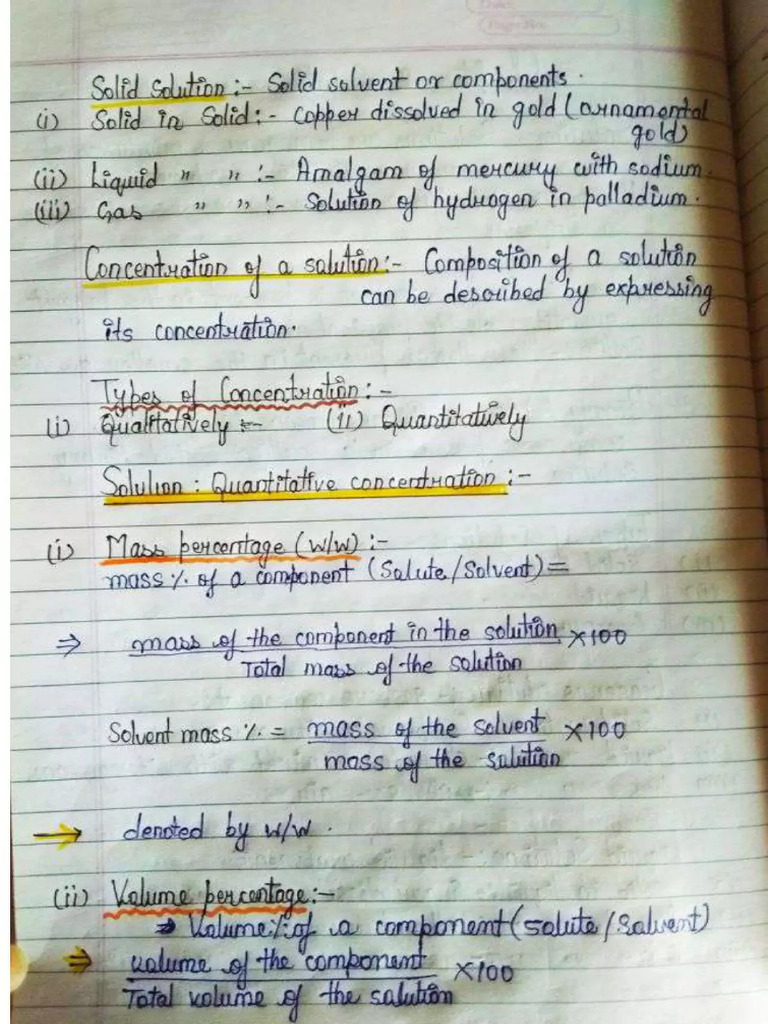 Solid Solution :- Solid solvent or components.
(i) Solid in Solid :- Copper dissolved in gold (ornamental
gold)
(ii) Liquid " " :- Amalgam of mercury with sodium.
(iii) Gas " " :- Solution of hydrogen in palladium.
Concentration of a solution :- Composition of a solution
can be described by expressing
its concentration.
Types of Concentration :-
(i) Qualitatively :- (ii) Quantitatively
Solution : Quantitative concentration :-
(i) Mass percentage (W/W) :-
mass % of a component (Solute/Solvent) =
⇒ mass of the component in the solution × 100
Total mass of the solution
Solvent mass % = mass of the solvent × 100
mass of the solution
→ denoted by W/W.
(ii) Volume percentage :-
→ Volume % of a component (solute/solvent)
⇒ volume of the component × 100
Total volume of the solution